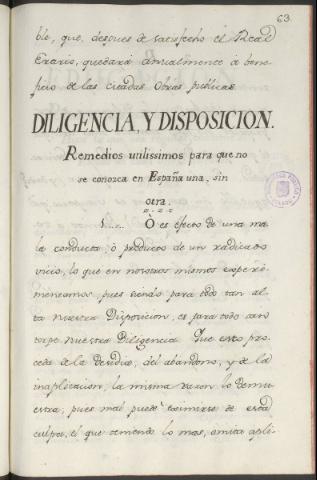 63.
ble, que, despues de satisfecho el Real
Erario, quedará annualmente á bene-
ficio de las citadas Obras publicas.
DILIGENCIA, Y DISPOSICION.
Remedios utilissimos para que no
se conozca en España una, sin
otra.
O es efecto de una ma-
la conducta, ó producto de un radicado
vicio, lo que en nosotros mismos experi-
mentamos, pues siendo para todo tan al-
ta nuestra Disposicion, es para todo tan
torpe nuestra Diligencia. Que esto pro-
ceda de la desidia, del abandono, y de la
inaplicacion, la misma razon lo demu-
estra, pues mal puede eximirse de esta
culpa, el que teniendo lo mas, omita apli-